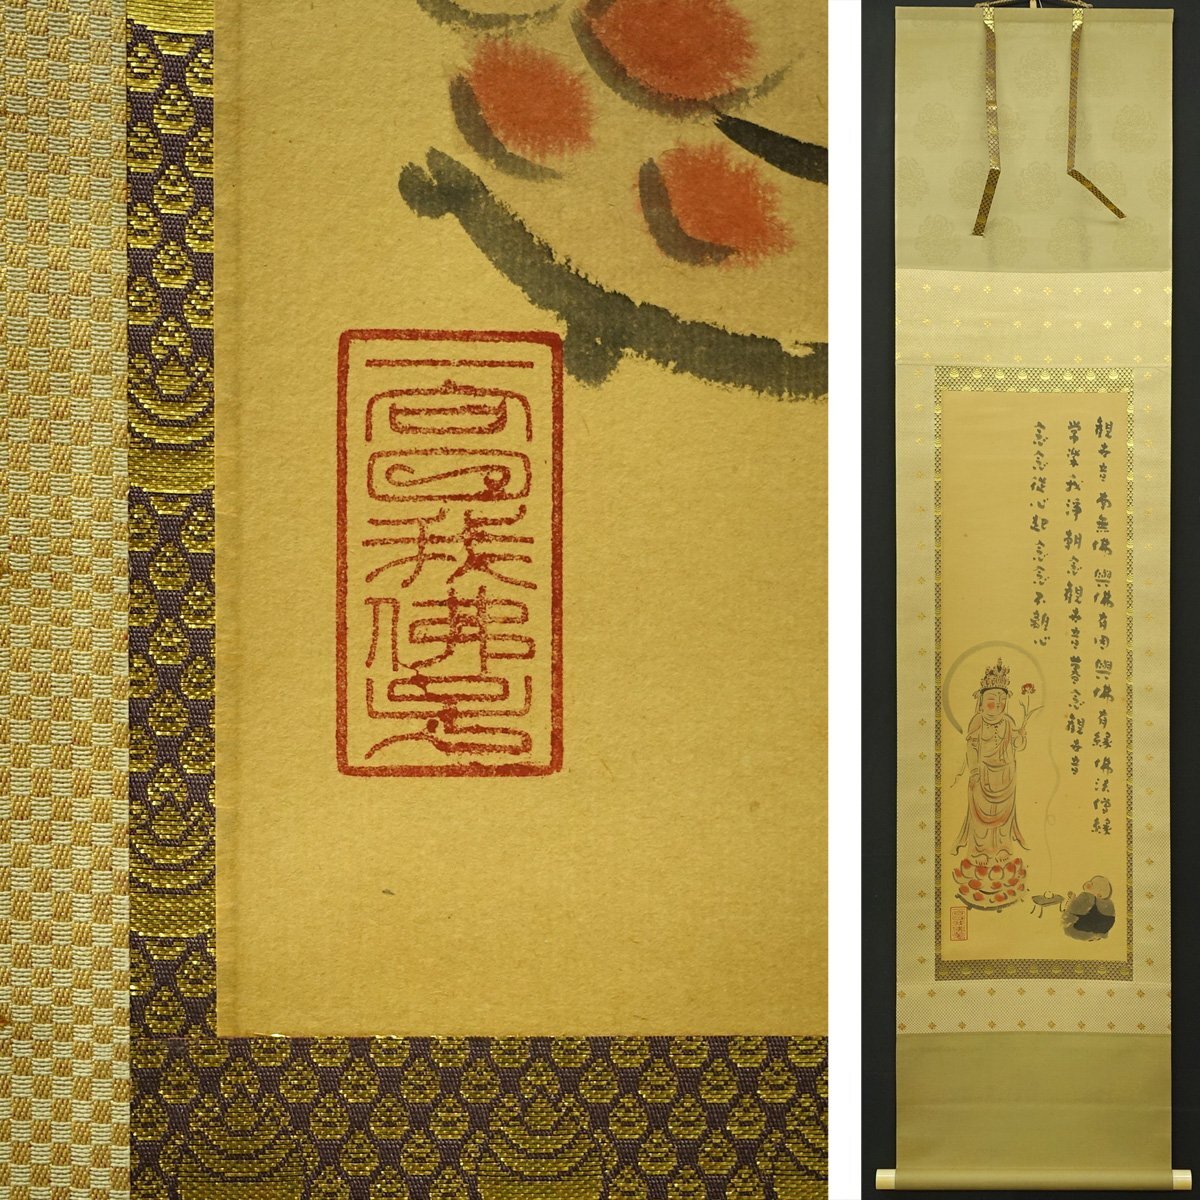 觀世音南無佛與佛有因與佛有縁佛法僧縁
常樂我淨朝念觀世音暮念觀世音
念念從心起念念不離心
我佛